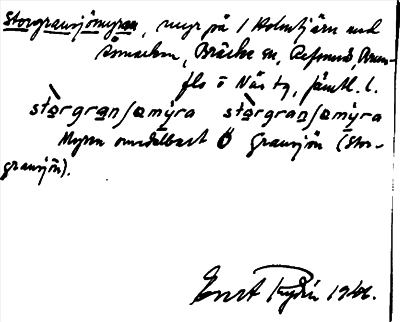 Storgransjömyran, myr på 1 Holmtjärn med
Sömarken, Bräcke sn, Refsund, Brun-
flo o Näs tg, Jämtl. l.
stòrgranʃømýra stòrgranʃømýra
Myren omedelbart Ö Gransjön (Stor-
gransjön).
Ernst 1946.